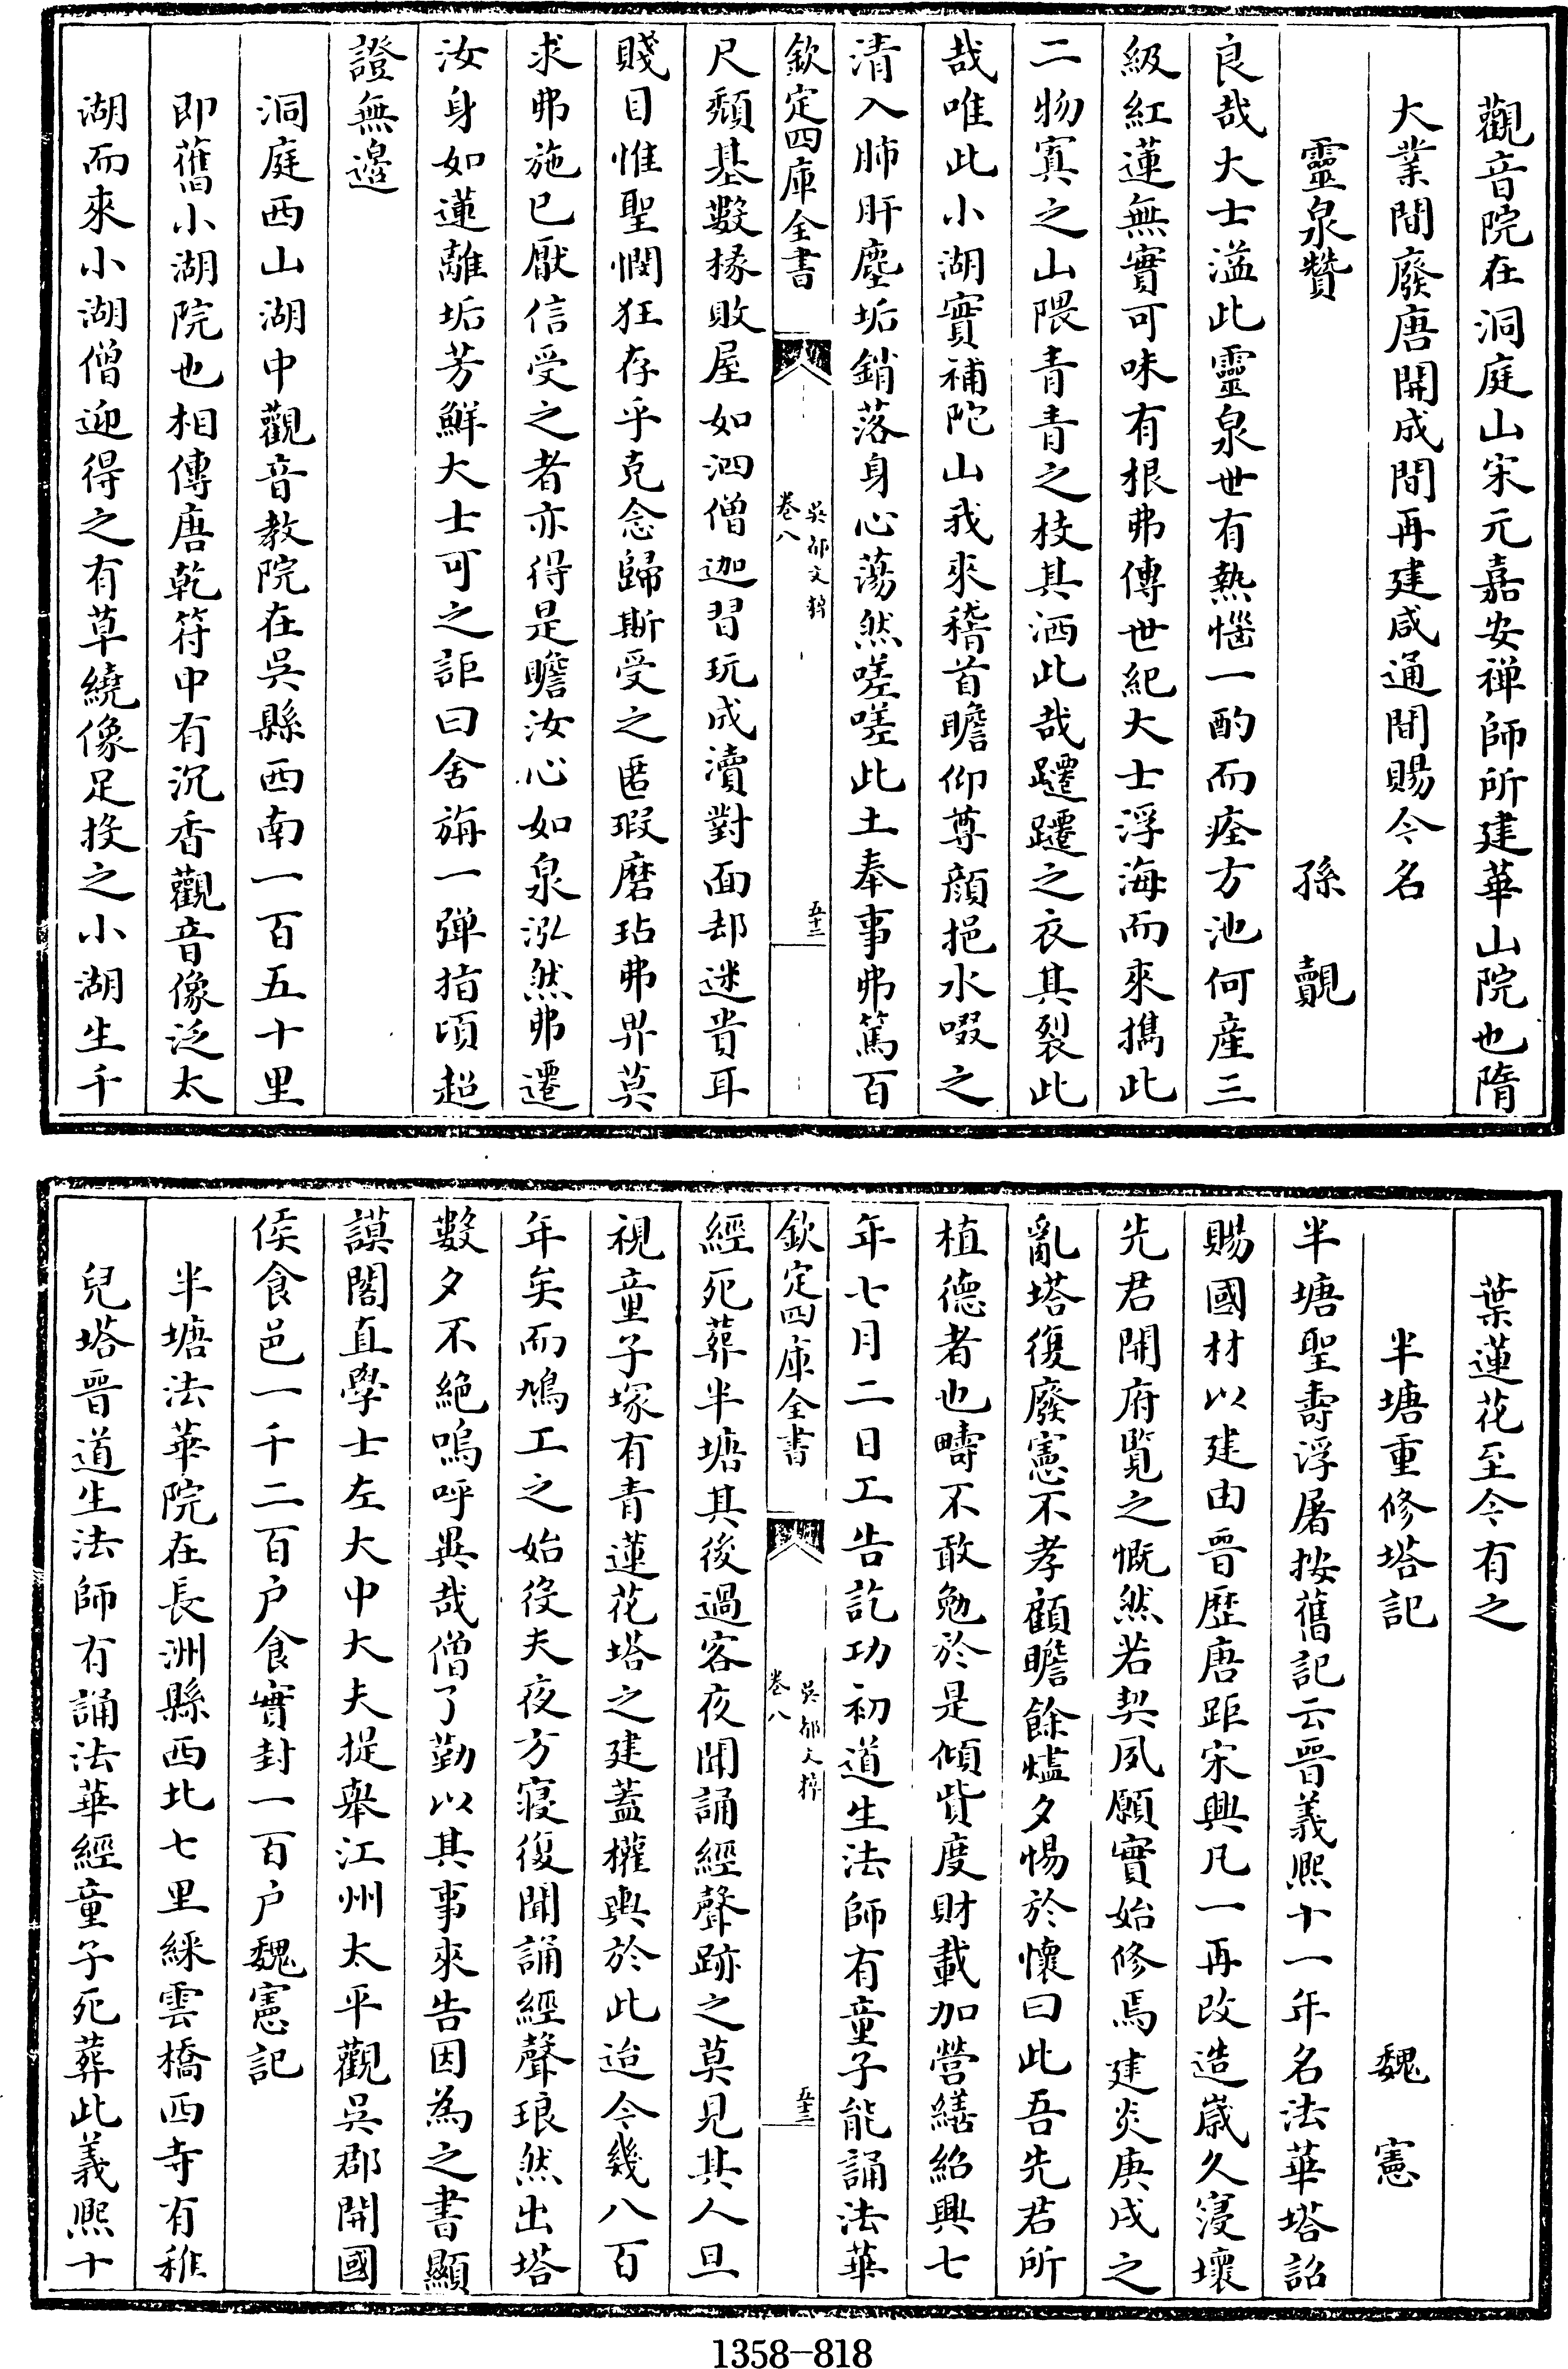 觀音院在洞庭山宋元嘉安禅師所建華山院也隋
大業間廢唐開成間再建咸通間賜今名
靈泉贊　孫覿
良哉大士溢此靈泉世有熱惱一酌而痊方池何産三
級紅蓮無實可味有根弗傳世紀大士浮海而來擕此
二物寘之山隈青青之枝其洒此哉躚躚之衣其裂此
哉唯此小湖實補陀山我來稽首瞻仰尊顔挹水啜之
清入肺肝塵垢銷落身心蕩然嗟嗟此土奉事弗篤百
欽定四庫全書　吳都文粹　卷八　五十二
尺頽基數椽敗屋如泗僧迦習玩成瀆對面却迷貴耳
賤目惟聖憫狂存乎克念歸斯受之匿瑕磨玷弗畀莫
求弗施已厭信受之者亦得是瞻汝心如泉泓然弗遷
汝身如蓮離垢芳鮮大士可之詎曰舍旃一彈指頃超
證無邉
洞庭西山湖中觀音教院在吳縣西南一百五十里
即舊小湖院也相傳唐乾符中有沉香觀音像泛太
湖而來小湖僧迎得之有草繞像足投之小湖生千
葉蓮花至今有之
半塘重修塔記　魏憲
半塘聖壽浮屠按舊記云晉義熙十一年名法華塔詔
賜國材以建由晉歴唐距宋興凡一再改造嵗久寖壞
先君開府覧之慨然若契夙願實始修焉建炎庚戌之
亂塔復廢憲不孝顧瞻餘燼夕惕於懷曰此吾先君所
植德者也疇不敢勉於是傾貲度財載加營繕紹興七
年七月二日工告訖功初道生法師有童子能誦法華
欽定四庫全書　吳都文粹　卷八　五十三
經死葬半塘其後過客夜聞誦經聲跡之莫見其人旦
視童子塚有青蓮花塔之建蓋權輿於此迨今幾八百
年矣而鳩工之始役夫夜方寢復聞誦經聲琅然出塔
數夕不絶嗚呼異哉僧了勤以其事來告因為之書顯
謨閣直學士左大中大夫提舉江州太平觀吳郡開國
侯食邑一千二百户食實封一百户魏憲記
半塘法華院在長洲縣西北七里綵雲橋西寺有稚
兒塔晉道生法師有誦法華經童子死葬此義熙十
1358-818